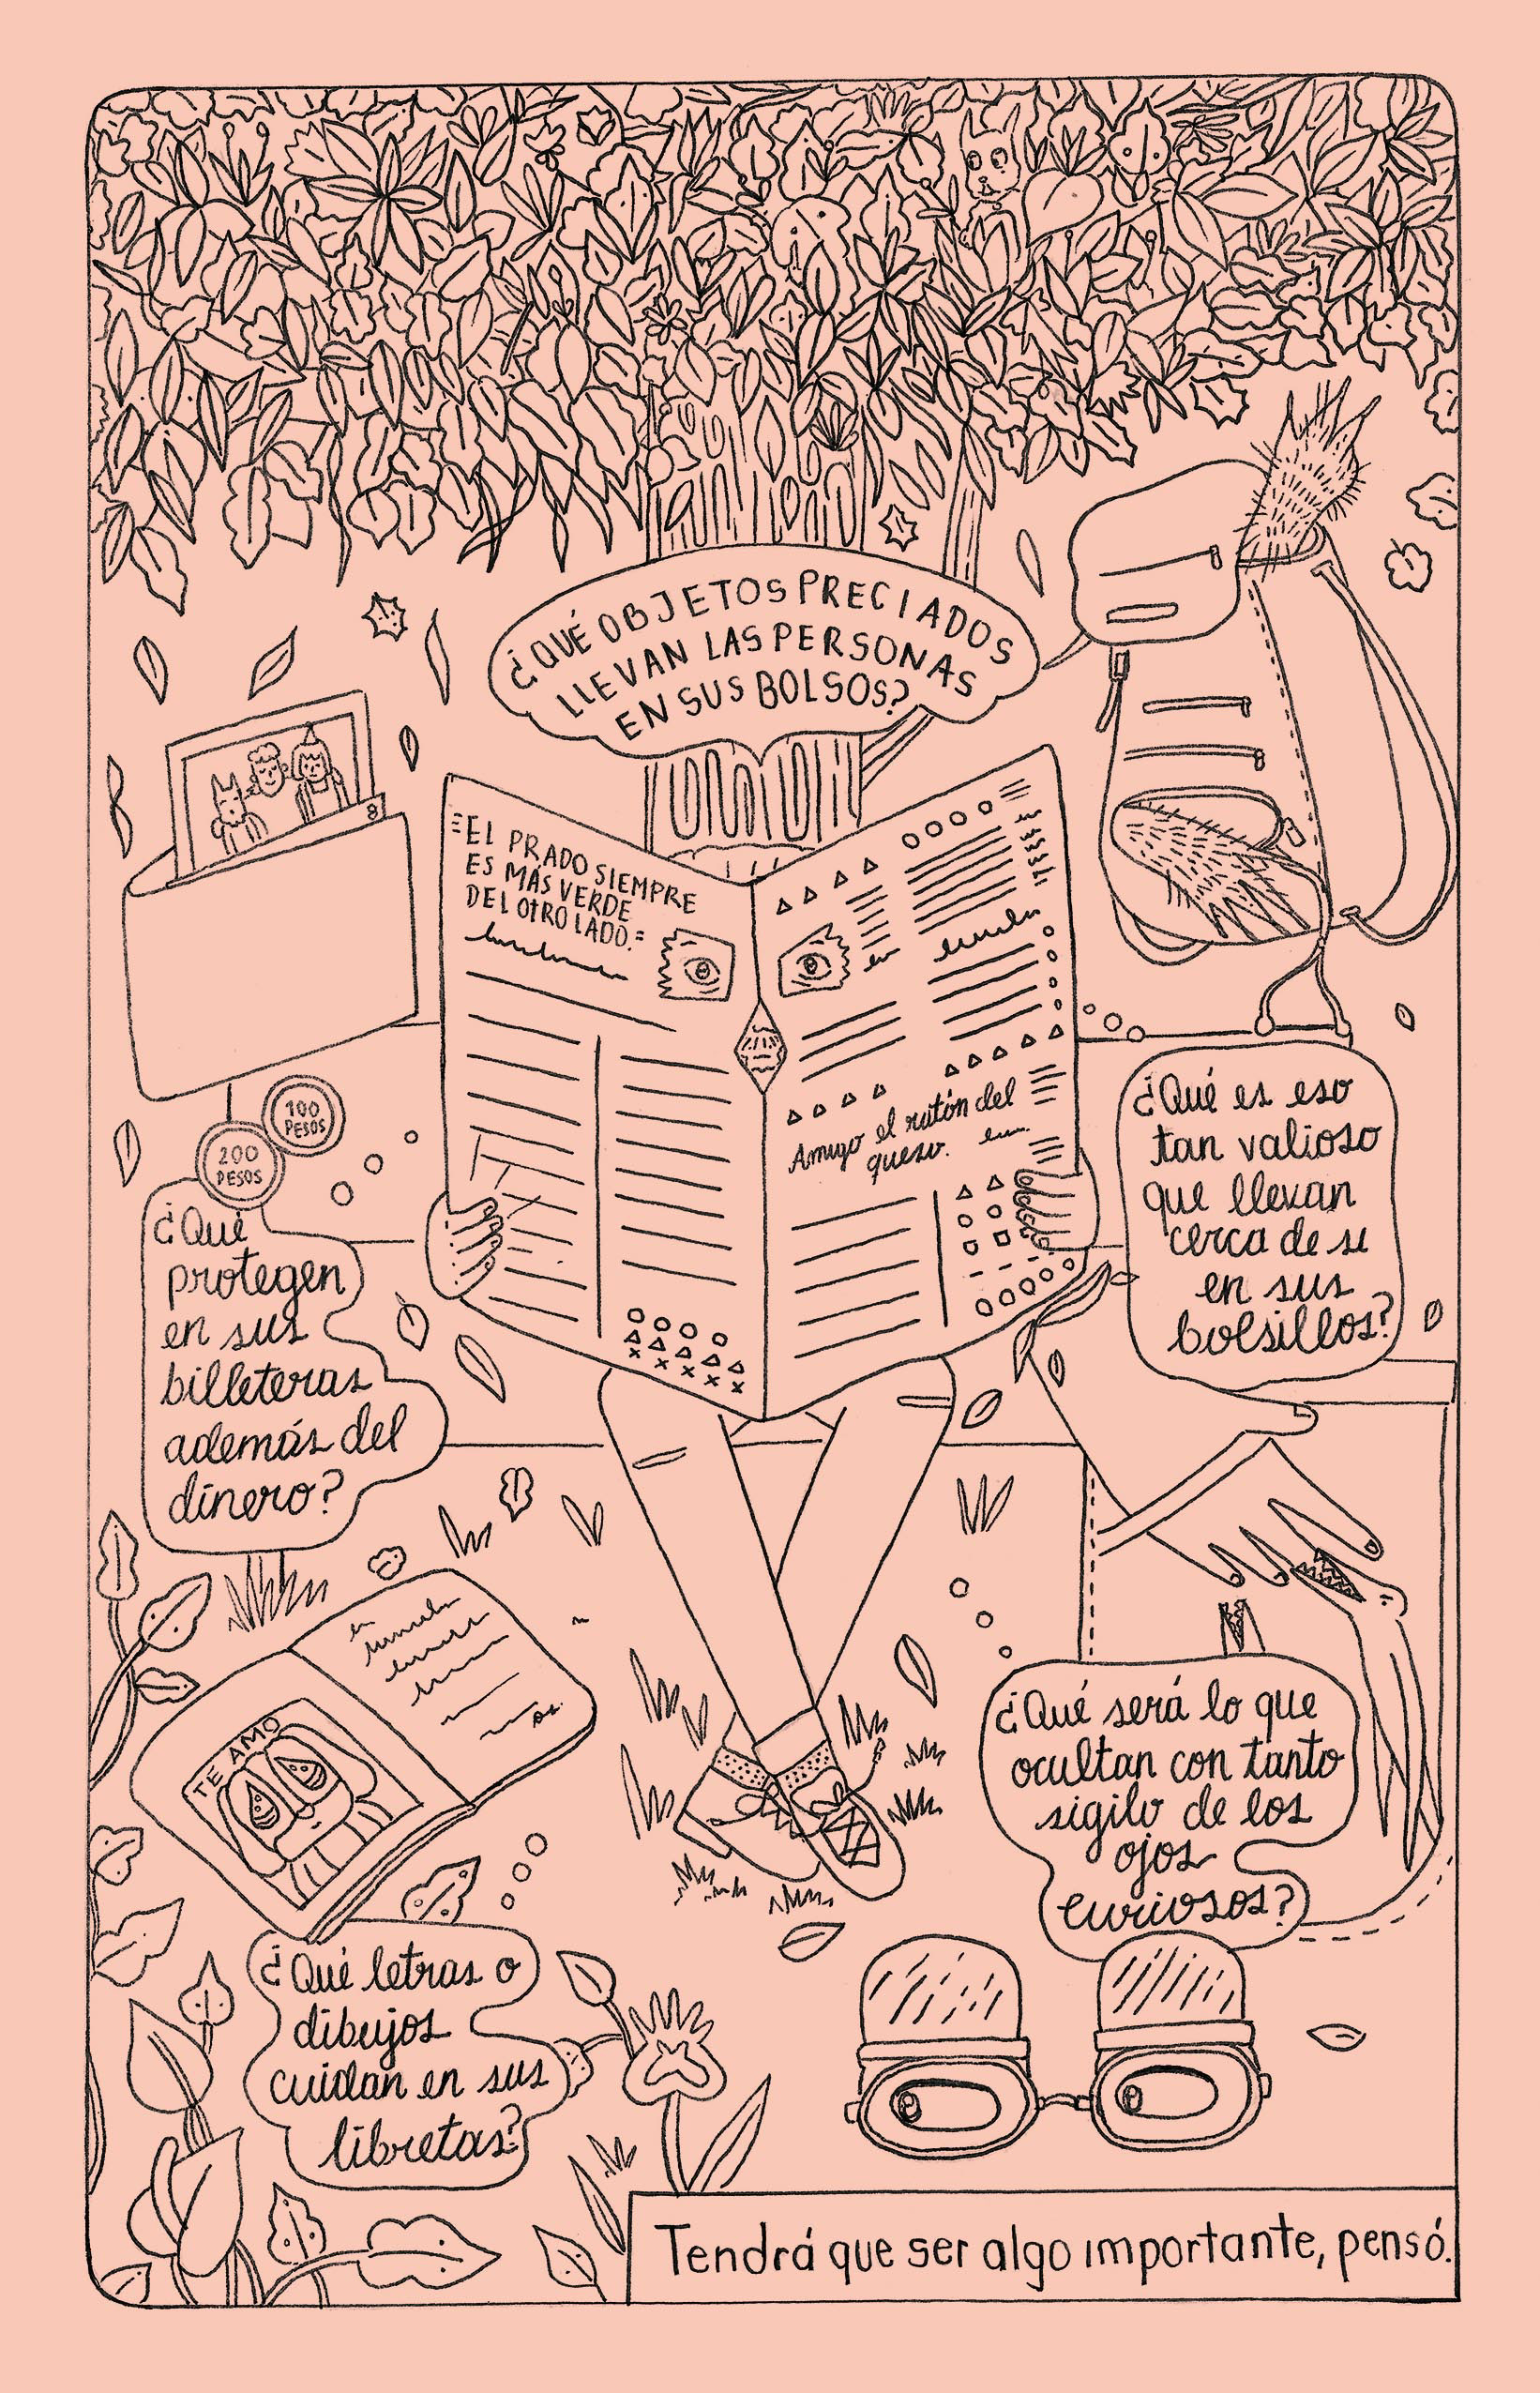 ¿QUÉ OBJETOS PRECIADOS
LLEVAN LAS PERSONAS
EN SUS BOLSOS?
EL PRADO SIEMPRE
ES MÁS VERDE
DEL OTRO LADO.
Amigo el ratón del
queso.
100
PESOS
200
PESOS
¿Qué
protegen
en sus
billeteras
además del
dinero?
¿Qué es eso
tan valioso
que llevan
cerca de si
en sus
bolsillos?
TE AMO
¿Qué será lo que
ocultan con tanto
sigilo de los
ojos
curiosos?
¿Qué letras o
dibujos
cuidan en sus
libretas?
Tendrá que ser algo importante, pensó.